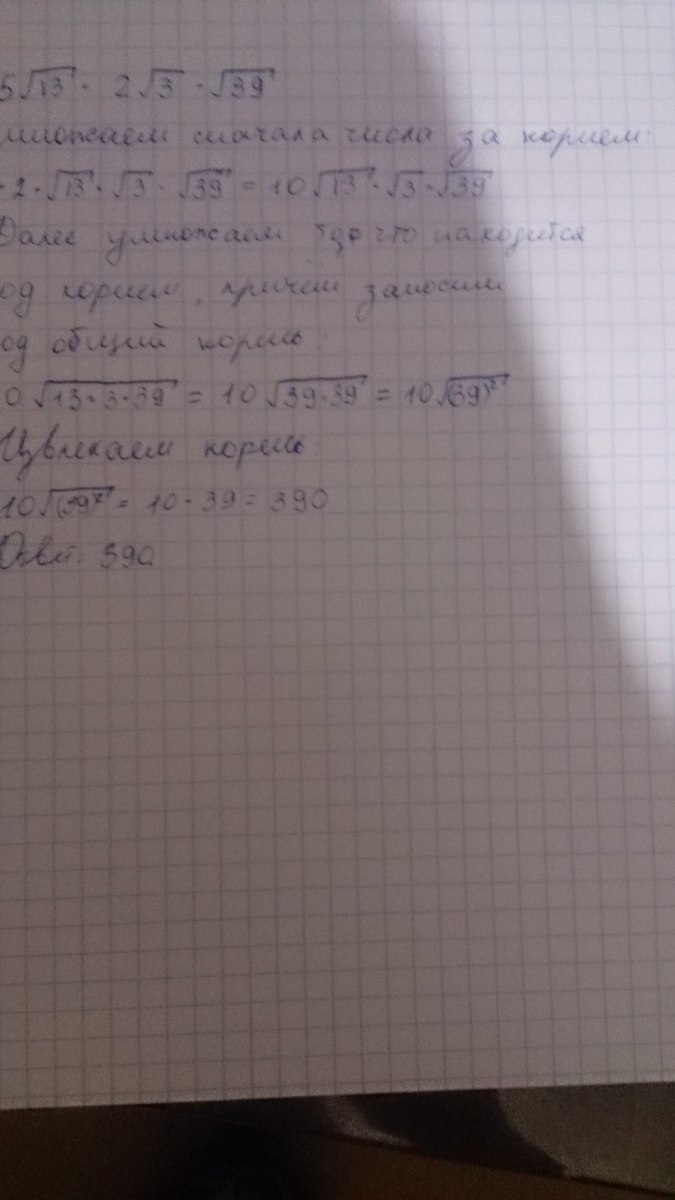 5√13 · 2√3 · √39
множаем сначала числа за корнем:
· 2 · √13 · √3 · √39 = 10√13 · √3 · √39
Далее умножаем что находится
од корнем, причём заносим
од общий корень:
0√13·3·39 = 10√39·39 = 10√(39)²
Извлекаем корень
10√(39)² = 10 · 39 = 390
Ответ: 390